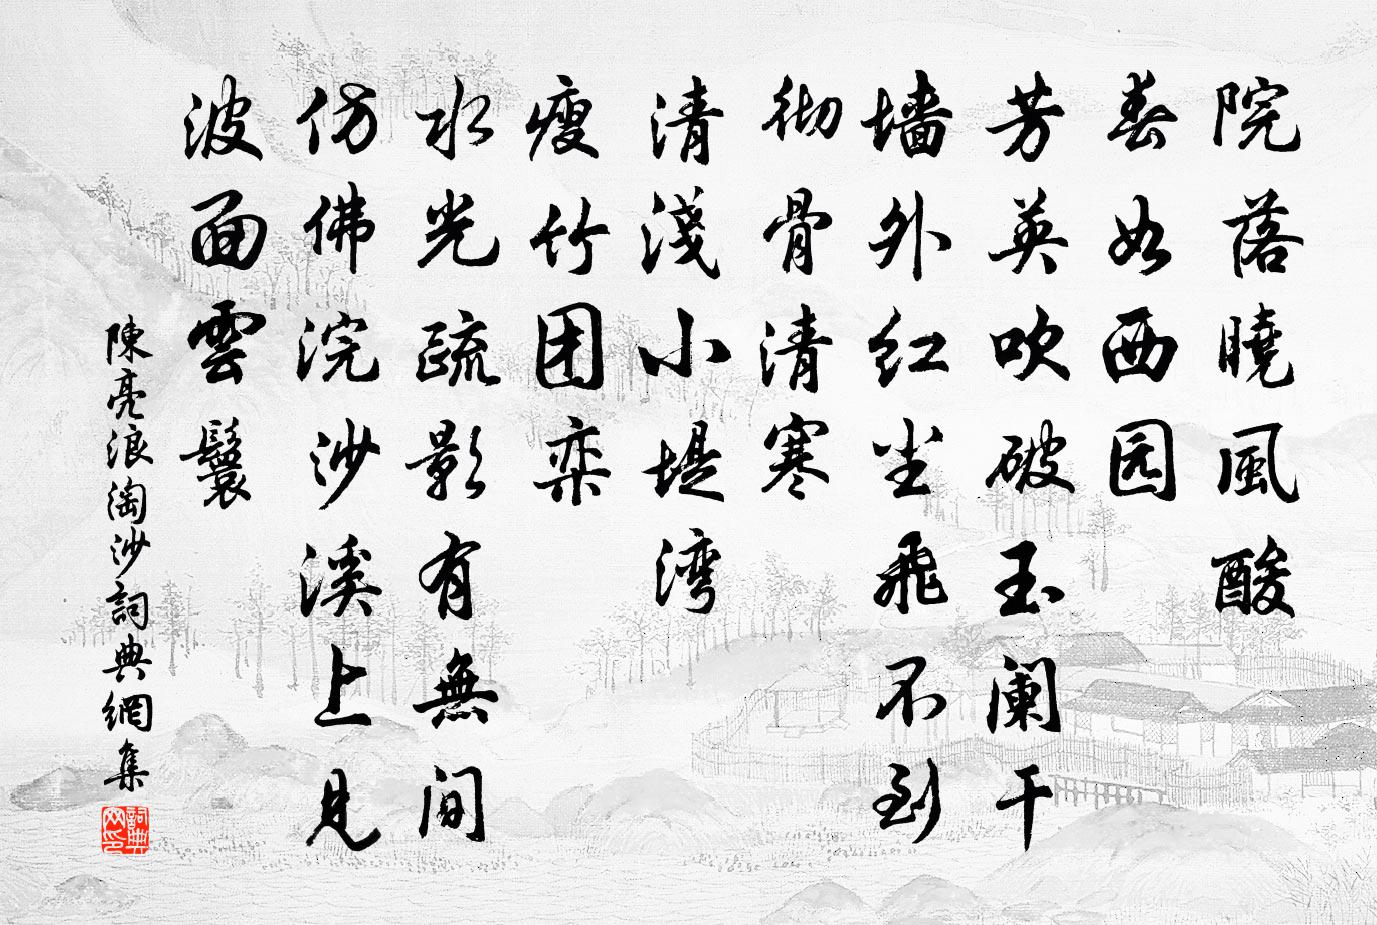 院落曉風酸
春如西园
芳英吹破玉阑干
墙外红尘飛不到
彻骨清寒
清淺小堤湾
瘦竹团栾
水光疏影有無間
仿佛浣沙溪上見
波面雲鬟
陳亮浪淘沙詞典網集
詞典網印